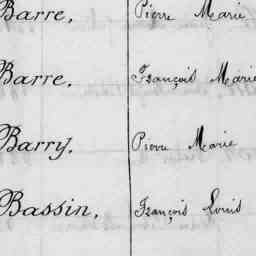 Barre, Pierre Marie
Barre, François Marie
Barry, Pierre Marie
Bassin, François Louis